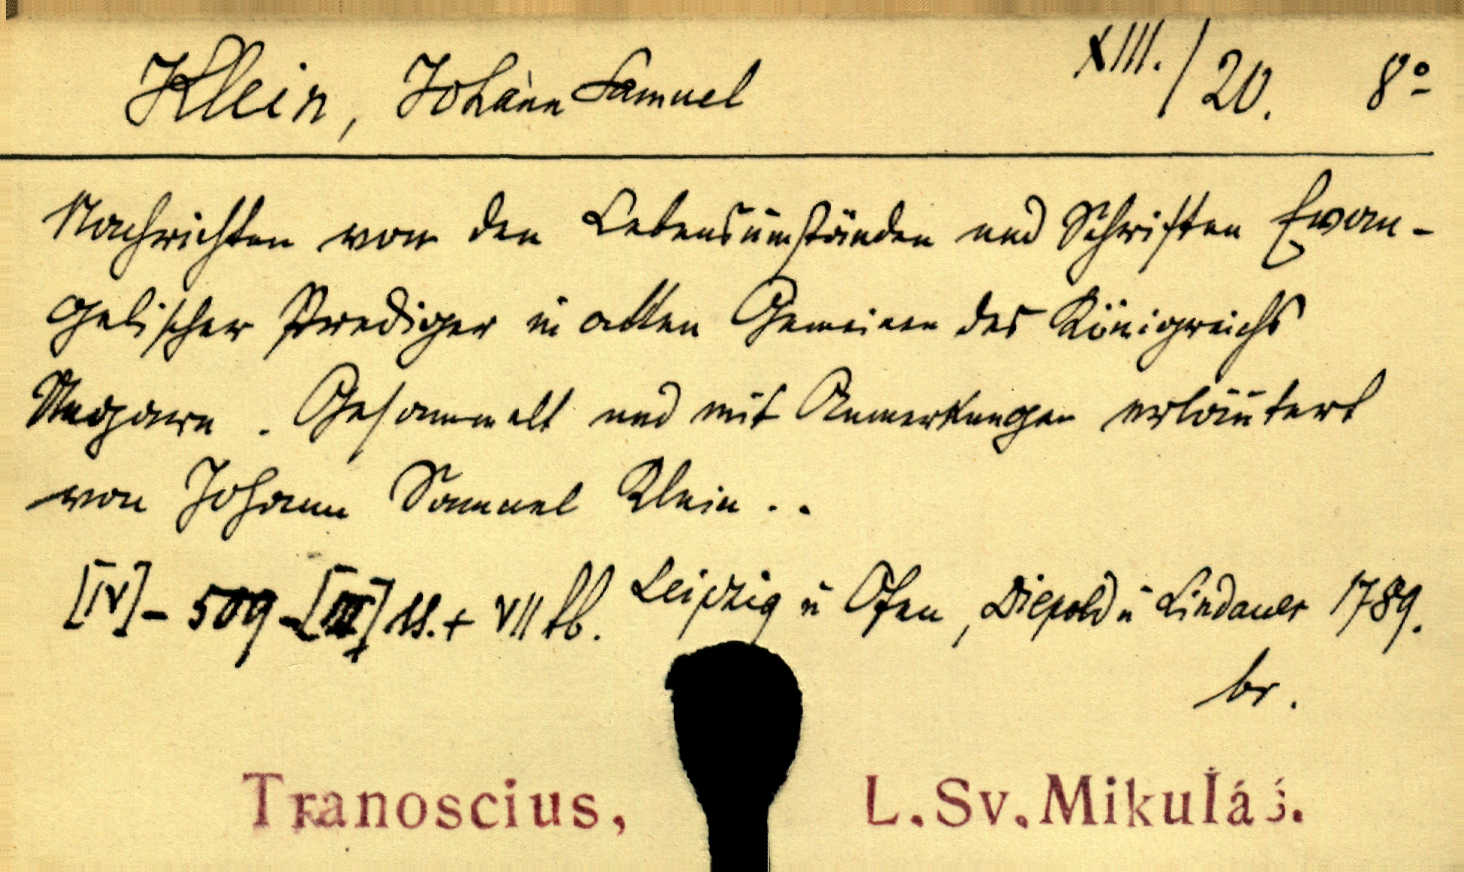 Klein, Johann Samuel XIII./20. 8°
Nachrichten von den Lebensumständen und Schriften Evan-
gelischer Prediger in allen Gemeinen des Königreichs
Ungarn. Gesammelt und mit Anmerkungen erläutert
von Johann Samuel Klein..
[IV]- 509 -[III] ss. + VII tb. Leipzig u Ofen, Diepold u Lindauer 1789.
br.
Tranoscius, L.Sv.Mikuláš.